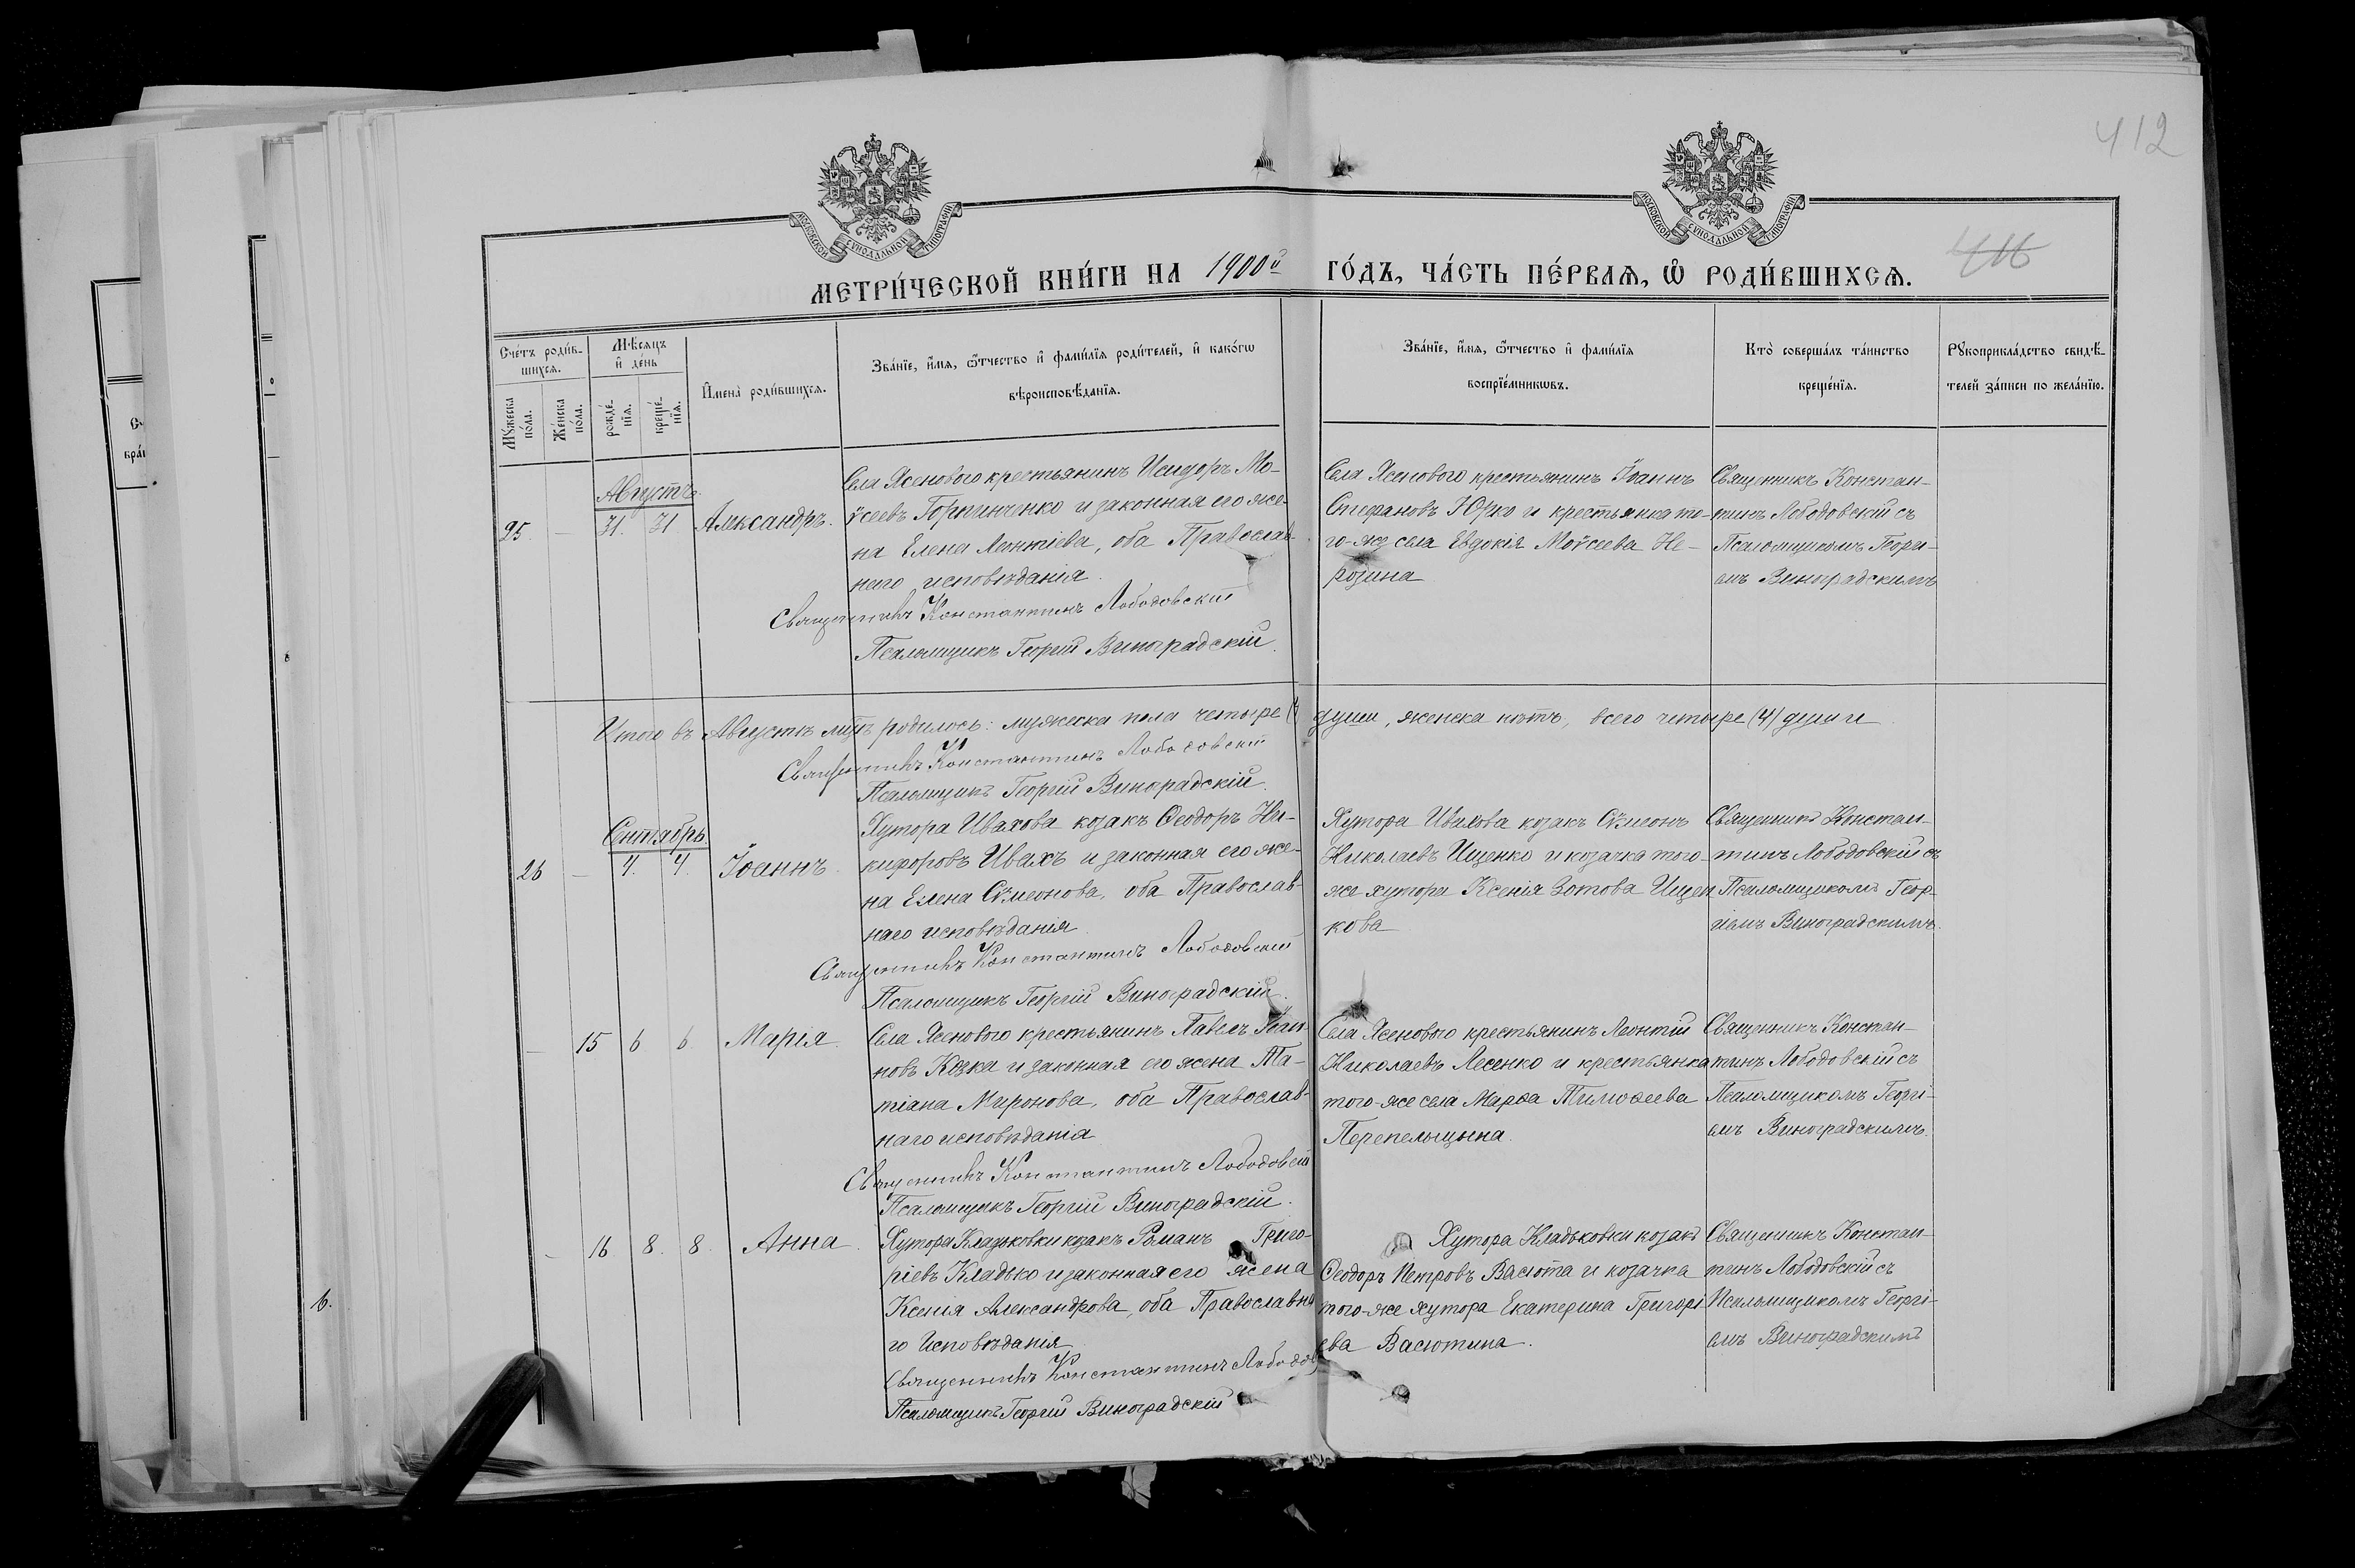 412
416
МОСКОВСКОЙ СѴНОДАЛЬНОЙ ТИПОГРАФІИ
МОСКОВСКОЙ СѴНОДАЛЬНОЙ ТИПОГРАФІИ
МЕТРИ́ЧЕСКОЙ КНИ́ГИ НА 1900й ГО́ДЪ, ЧА́СТЬ ПЕ́РВАѦ, Ѡ҆ РОДИ́ВШИХСѦ.
Сче́тъ роди́в-
шихсѧ.
Мꙋ́жеска
по́ла.
Же́нска
по́ла.
Мѣ́сѧцъ
и҆ де́нь
рожде́-
нїѧ.
креще́-
нїѧ.
И҆мена̀ роди́вшихсѧ.
Зва́нїе, и҆́мѧ, ѻ҆́тчество и҆ фамилїѧ роди́телей, и҆ како́гѡ
вѣроисповѣ́данїѧ.
Зва́нїе, и҆́мѧ, ѻ҆́тчество и҆ фами́лїѧ
воспрїе́мникѡвъ.
Кто̀ соверша́лъ та́инство
креще́нїѧ.
Рꙋкоприкла́дство свидѣ́-
телей за́писи по жела́нїю.
Августъ.
25. — 31. 31 Александръ.
Села Ясенового крестьянинъ Исидоръ Мо-
ѵсеевъ Горпинченко и законная его же-
на Елена Леонтіева, оба Православ-
наго исповѣданія.
Священникъ Константинъ Лободовскій
Псаломщикъ Георгій Виноградскій.
Села Ясенового крестьянинъ Іоаннъ
Стефановъ Юрко и крестьянка то-
го-же села Евдокія Моѵсеева Не-
розина
Священникъ Констан-
тинъ Лободовскій съ
Псаломщикомъ Георгі-
емъ Виноградскимъ
Итого въ Августѣ мцѣ родилось: мужеска пола четыре (4 души, женска нѣтъ, всего четыре (4) души
Священникъ Константинъ Лободовскій
Псаломщикъ Георгій Виноградскій.
Сентябрь.
26 — 4. 4. Іоаннъ.
Хутора Ивахова козакъ Ѳеодоръ Ни-
кифоровъ Ивахъ и законная его же-
на Елена Сѵмеонова, оба Православ-
наго исповѣданія.
Священникъ Константинъ Лободовскій
Псаломщикъ Георгій Виноградскій.
Хутора Ивахова козакъ Сѵмеонъ
Николаевъ Ищенко и козачка того-
же хутора Ксенія Зотова Ищен
кова
Священникъ Констан-
тинъ Лободовскій съ
Псаломщикомъ Геор-
гіемъ Виноградскимъ.
— 15 6 6 Марія.
Села Ясенового крестьянинъ Павелъ Іоан-
новъ Козка и законная его жена Та-
тіана Миронова, оба Православ-
наго исповѣданія
Священникъ Константинъ Лободовскій
Псаломщикъ Георгій Виноградскій.
Села Ясенового крестьянинъ Леонтій
Николаевъ Лесенко и крестьянка
того-же села Марѳа Тимоѳеева
Перепельцына.
Священникъ Констан-
тинъ Лободовскій съ
Псаломщикомъ Георгі-
емъ Виноградскимъ.
— 16 8. 8. Анна.
Хутора Кладьковки козакъ Романъ Григо-
ріевъ Кладько и законная его жена
Ксенія Александрова, оба Православна
го Исповѣданія
Священникъ Константинъ Лободов
Псаломщикъ Георгій Виноградскій
Хутора Кладьковки козакъ
Ѳеодоръ Петровъ Васюта и козачка
того-же хутора Екатерина Григорі
ева Васютина.
Священникъ Констан-
тинъ Лободовскій съ
Псаломщикомъ Георгі-
емъ Виноградскимъ
6.